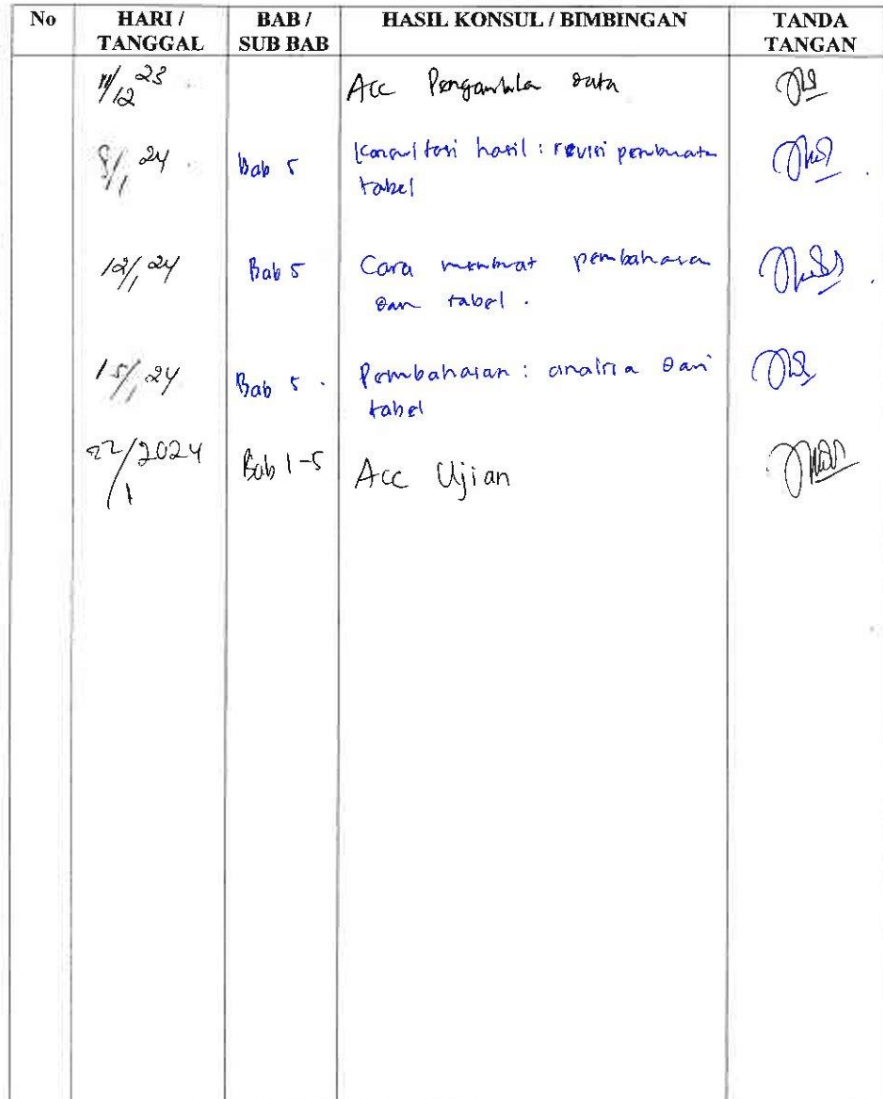 No HARI / TANGGAL BAB / SUB BAB HASIL KONSUL / BIMBINGAN TANDA TANGAN
11/12 23 Acc Pengambila data
8/1, 24 Bab 5 Konsultasi hasil : revisi pembuata
tabel
12/1, 24 Bab 5 Cara membuat pembahasan
dan tabel .
15/1, 24 Bab 5 . Pembahasan : analisa dari
tabel
22/1 2024 Bab 1-5 Acc Ujian